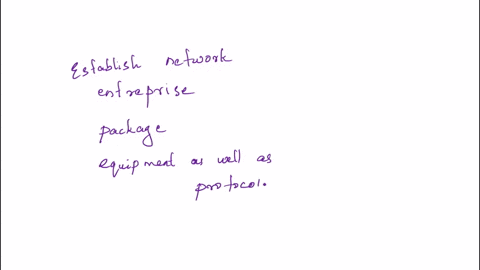 Establish network
entreprise
package
equipment as well as
protocol.